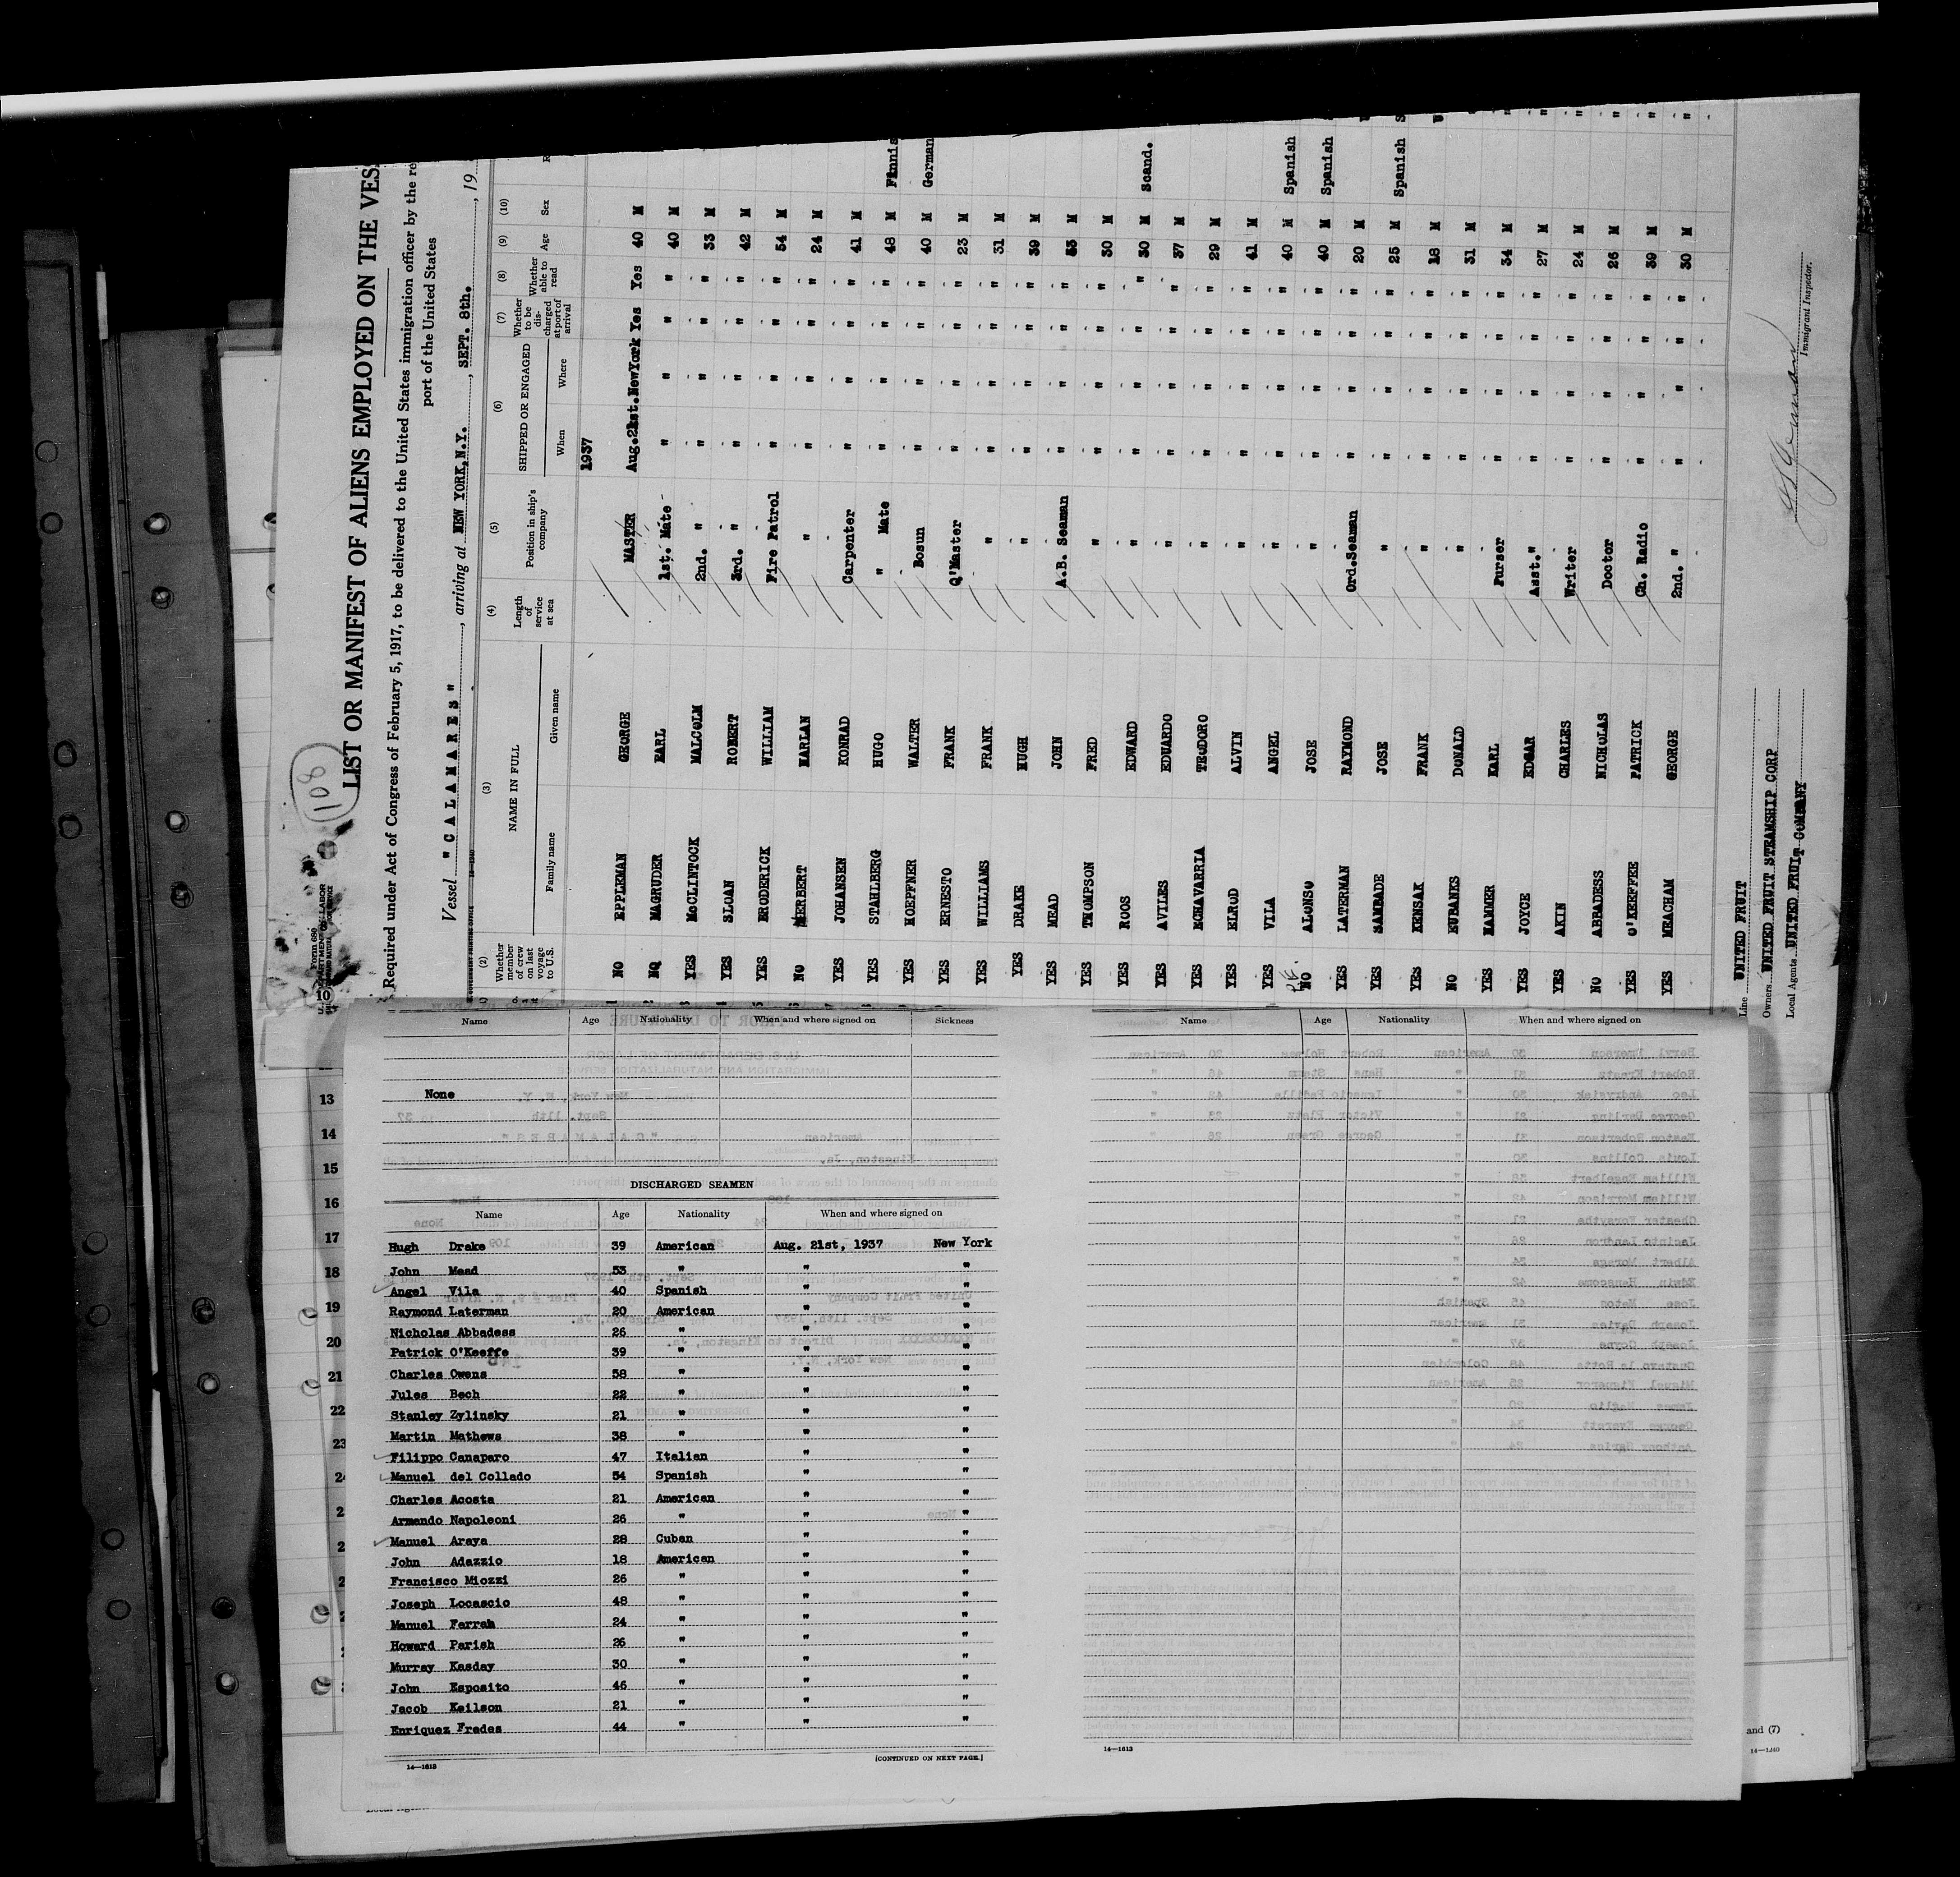 108
Form 680
10
LIST OR MANIFEST OF ALIENS EMPLOYED ON THE VES
Required under Act of Congress of February 5, 1917, to be delivered to the United States immigration officer by the re
port of the United States
Vessel "CALAMARES", arriving at NEW YORK,N.Y., SEPT. 8th., 19
(2) (3) (4) (5) (6) (7) (8) (9) (10)
Whether member of crew on last voyage to U.S. NAME IN FULL Family name Given name Length of service at sea Position in ship's company SHIPPED OR ENGAGED When Where Whether to be discharged at port of arrival Whether able to read Age Sex
1937
NO EPPLEMAN GEORGE MASTER Aug.21st. NewYork Yes Yes 40 M
NO MAGRUDER EARL 1st. Mate " " " " 40 M
YES McCLINTOCK MALCOLM 2nd. " " " " " 33 M
YES SLOAN ROBERT 3rd. " " " " " 42 M
YES BRODERICK WILLIAM Fire Patrol " " " " 54 M
NO HERBERT HARLAN " " " " " 24 M
YES JOHANSEN KONRAD Carpenter " " " " 41 M
YES STAHLBERG HUGO " Mate " " " " 48 M Finnis
YES HOEPFNER WALTER Bosun " " " " 40 M German
YES ERNESTO FRANK Q'Master " " " " 23 M
YES WILLIAMS FRANK " " " " " 31 M
YES DRAKE HUGH " " " " " 39 M
YES MEAD JOHN A.B. Seaman " " " " 53 M
YES THOMPSON FRED " " " " " 30 M
YES ROOS EDWARD " " " " " 30 M Scand.
YES AVILES EDUARDO " " " " " 37 M
YES ECHAVARRIA TEODORO " " " " " 29 M
YES ELROD ALVIN " " " " " 41 M
YES VILA ANGEL " " " " " 40 M Spanish
NO ALONSO JOSE " " " " " 40 M Spanish
YES LATERMAN RAYMOND Ord.Seaman " " " " 20 M
YES SAMBADE JOSE " " " " " 25 M Spanish
YES KENSAK FRANK " " " " " 18 M
NO EUBANKS DONALD " " " " " 31 M
YES HAMMER KARL Purser " " " " 34 M
YES JOYCE EDGAR Asst." " " " " 27 M
YES AKIN CHARLES Writer " " " " 24 M
NO ABBADESS NICHOLAS Doctor " " " " 26 M
YES O'KEEFFE PATRICK Ch. Radio " " " " 39 M
YES MEACHAM GEORGE 2nd. " " " " " 30 M
Line UNITED FRUIT
Owners UNITED FRUIT STEAMSHIP CORP
Local Agents UNITED FRUIT COMPANY
Immigrant Inspector.
Name Age Nationality When and where signed on Sickness
None
DISCHARGED SEAMEN
Name Age Nationality When and where signed on
Hugh Drake 39 American Aug. 21st, 1937 New York
John Mead 53 " " "
Angel Vila 40 Spanish " "
Raymond Laterman 20 American " "
Nicholas Abbadess 26 " " "
Patrick O'Keeffe 39 " " "
Charles Owens 58 " " "
Jules Bech 22 " " "
Stanley Zylinsky 21 " " "
Martin Mathews 38 " " "
Filippo Canaparo 47 Italian " "
Manuel del Collado 54 Spanish " "
Charles Acosta 21 American " "
Armando Napoleoni 26 " " "
Manuel Araya 28 Cuban " "
John Adazzio 18 American " "
Francisco Miozzi 26 " " "
Joseph Locascio 48 " " "
Manuel Farrah 24 " " "
Howard Parish 26 " " "
Murray Kasday 30 " " "
John Esposito 46 " " "
Jacob Keilson 21 " " "
Enriquez Frades 44 " " "
14—1613 [CONTINUED ON NEXT PAGE.]
Name Age Nationality When and where signed on
14—1613
13
14
15
16
17
18
19
20
21
22
23
and (7)
14—1240